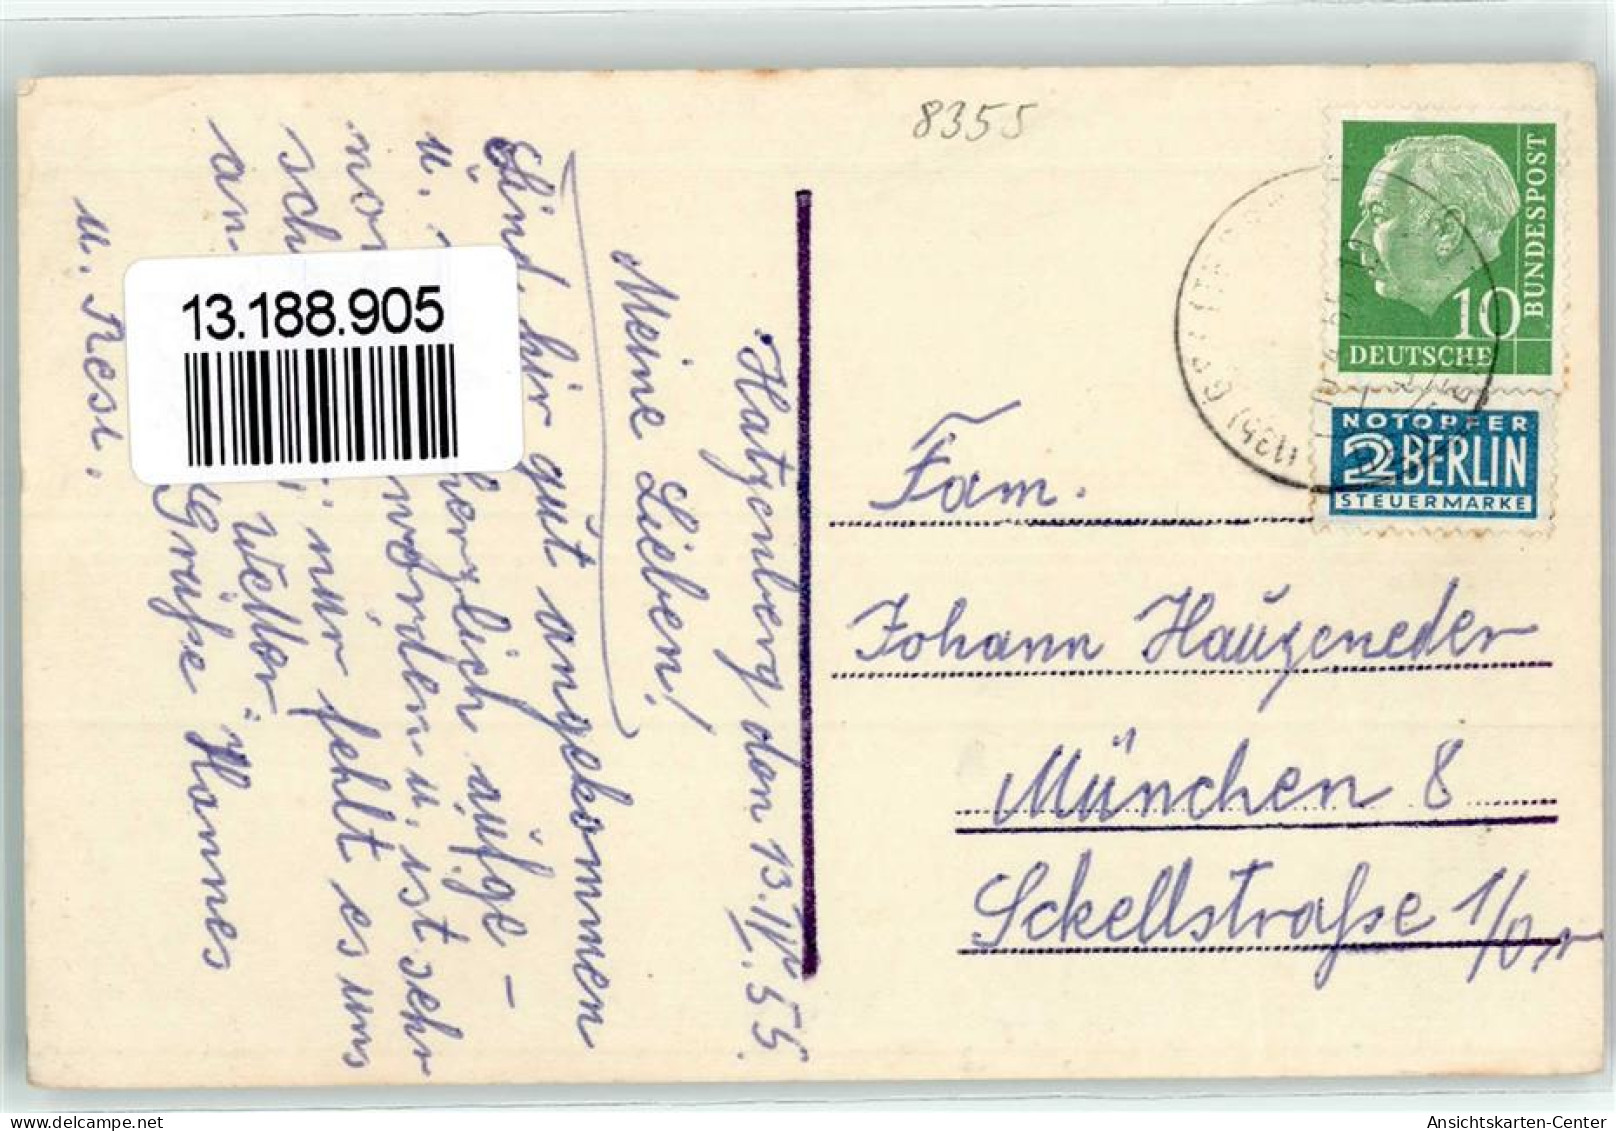 8355
Hatzenberg den 13.IV.55.
Meine Lieben!
Sind hir gut angekommen
u. herzlich aufge-
worden u. ist sehr
sch nur fehlt es uns
an Wetter.
Grüße Hannes
u. Resi.
13.188.905
BUNDESPOST
10
DEUTSCHE
NOTOPFER
2 BERLIN
STEUERMARKE
Fam.
Johann Haugeneder
München 8
Sckellstraße 1/0,r
delcampe.net
Ansichtskarten-Center